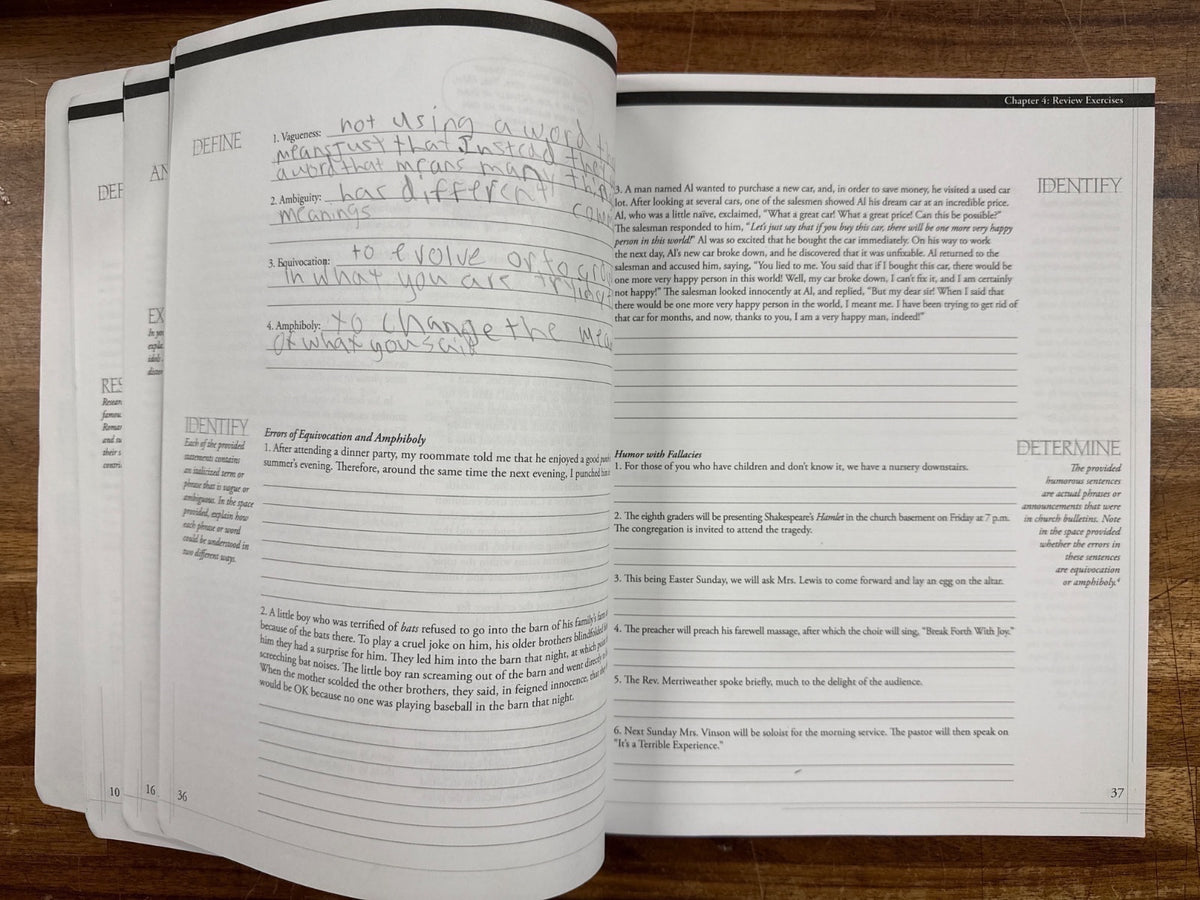 DEFINE
1. Vagueness: not using a word
means Just that Instead
a word that means many
2. Ambiguity: has different
meanings
3. Equivocation: to evolve or to
in what you are trying
4. Amphiboly: to change the
of what you said
IDENTIFY
Each of the provided
statements contains
an italicized term or
phrase that is vague or
ambiguous. In the space
provided, explain how
each phrase or word
could be understood in
two different ways.
Errors of Equivocation and Amphiboly
1. After attending a dinner party, my roommate told me that he enjoyed a good
summer's evening. Therefore, around the same time the next evening, I punched
2. A little boy who was terrified of bats refused to go into the barn of his family's
because of the bats there. To play a cruel joke on him, his older brothers blindfolded
him they had a surprise for him. They led him into the barn that night, at which
screeching bat noises. The little boy ran screaming out of the barn and went directly
When the mother scolded the other brothers, they said, in feigned innocence, that
would be OK because no one was playing baseball in the barn that night.
10
16
36
Chapter 4: Review Exercises
IDENTIFY
3. A man named Al wanted to purchase a new car, and, in order to save money, he visited a used car
lot. After looking at several cars, one of the salesmen showed Al his dream car at an incredible price.
Al, who was a little naïve, exclaimed, "What a great car! What a great price! Can this be possible?"
The salesman responded to him, "Let's just say that if you buy this car, there will be one more very happy
person in this world!" Al was so excited that he bought the car immediately. On his way to work
the next day, Al's new car broke down, and he discovered that it was unfixable. Al returned to the
salesman and accused him, saying, "You lied to me. You said that if I bought this car, there would be
one more very happy person in this world! Well, my car broke down, I can't fix it, and I am certainly
not happy!" The salesman looked innocently at Al, and replied, "But my dear sir! When I said that
there would be one more very happy person in the world, I meant me. I have been trying to get rid of
that car for months, and now, thanks to you, I am a very happy man, indeed!"
DETERMINE
The provided
humorous sentences
are actual phrases or
announcements that were
in church bulletins. Note
in the space provided
whether the errors in
these sentences
are equivocation
or amphiboly.⁴
Humor with Fallacies
1. For those of you who have children and don't know it, we have a nursery downstairs.
2. The eighth graders will be presenting Shakespeare's Hamlet in the church basement on Friday at 7 p.m.
The congregation is invited to attend the tragedy.
3. This being Easter Sunday, we will ask Mrs. Lewis to come forward and lay an egg on the altar.
4. The preacher will preach his farewell massage, after which the choir will sing, "Break Forth With Joy."
5. The Rev. Merriweather spoke briefly, much to the delight of the audience.
6. Next Sunday Mrs. Vinson will be soloist for the morning service. The pastor will then speak on
"It's a Terrible Experience."
37